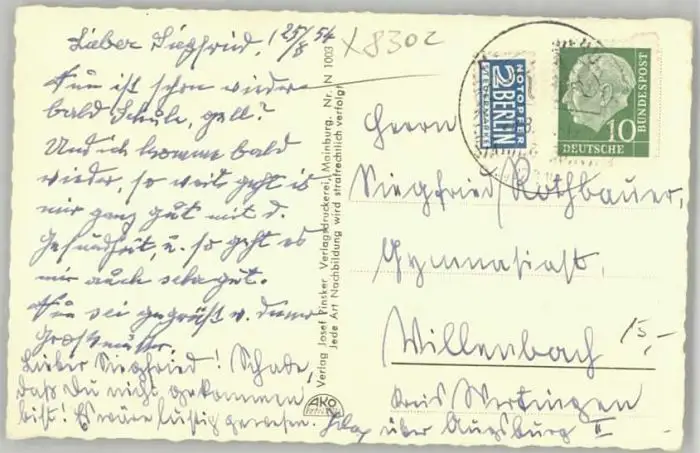 Lieber Siegfried! 25/8 54
Nun ist schon wieder
bald Schule, gell?
Und ich komme bald
wieder, so weit geht es
mir ganz gut mit d.
Gesundheit, u. so geht es
mir auch sehr gut.
Nun sei gegrüßt v. deiner
Grossmutter
Lieber Siegfried! Schade,
daß Du nicht gekommen
bist! Es wäre lustig gewesen.
X8302
Verlag Josef Pinsker, Verlagsdruckerei, Mainburg. Nr. N 1003
Jede Art Nachbildung wird strafrechtlich verfolgt
AKO
NOTOPFER
2 BERLIN
STEUERMARKE
10
DEUTSCHE
BUNDESPOST
Herrn
Siegfried Rothbauer,
Gymnasiast,
Willenbach
15,-
Kreis Wertingen
über Augsburg II